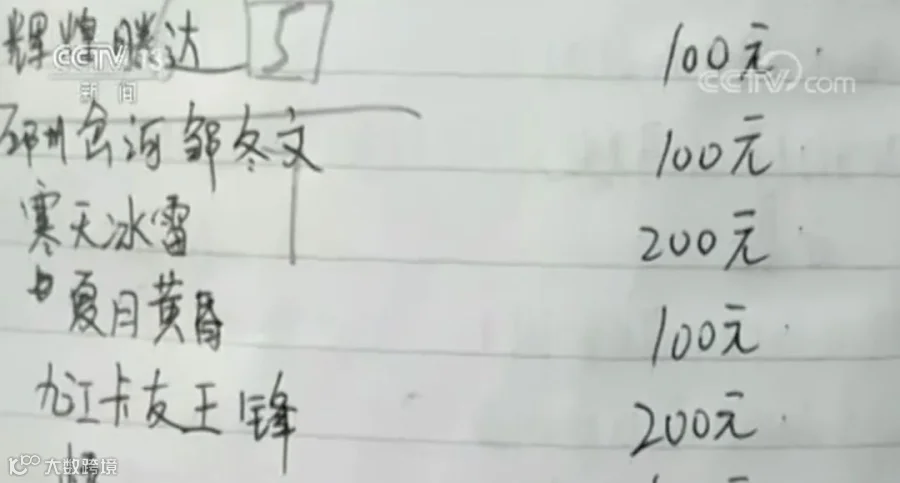 辉煌腾达 5 100元
CCTV 13
新闻
CCTV.com
邳州官河邹冬文 100元
寒天冰雷 200元
夏月黄昏 100元
九江卡友王锋 200元
大数跨境